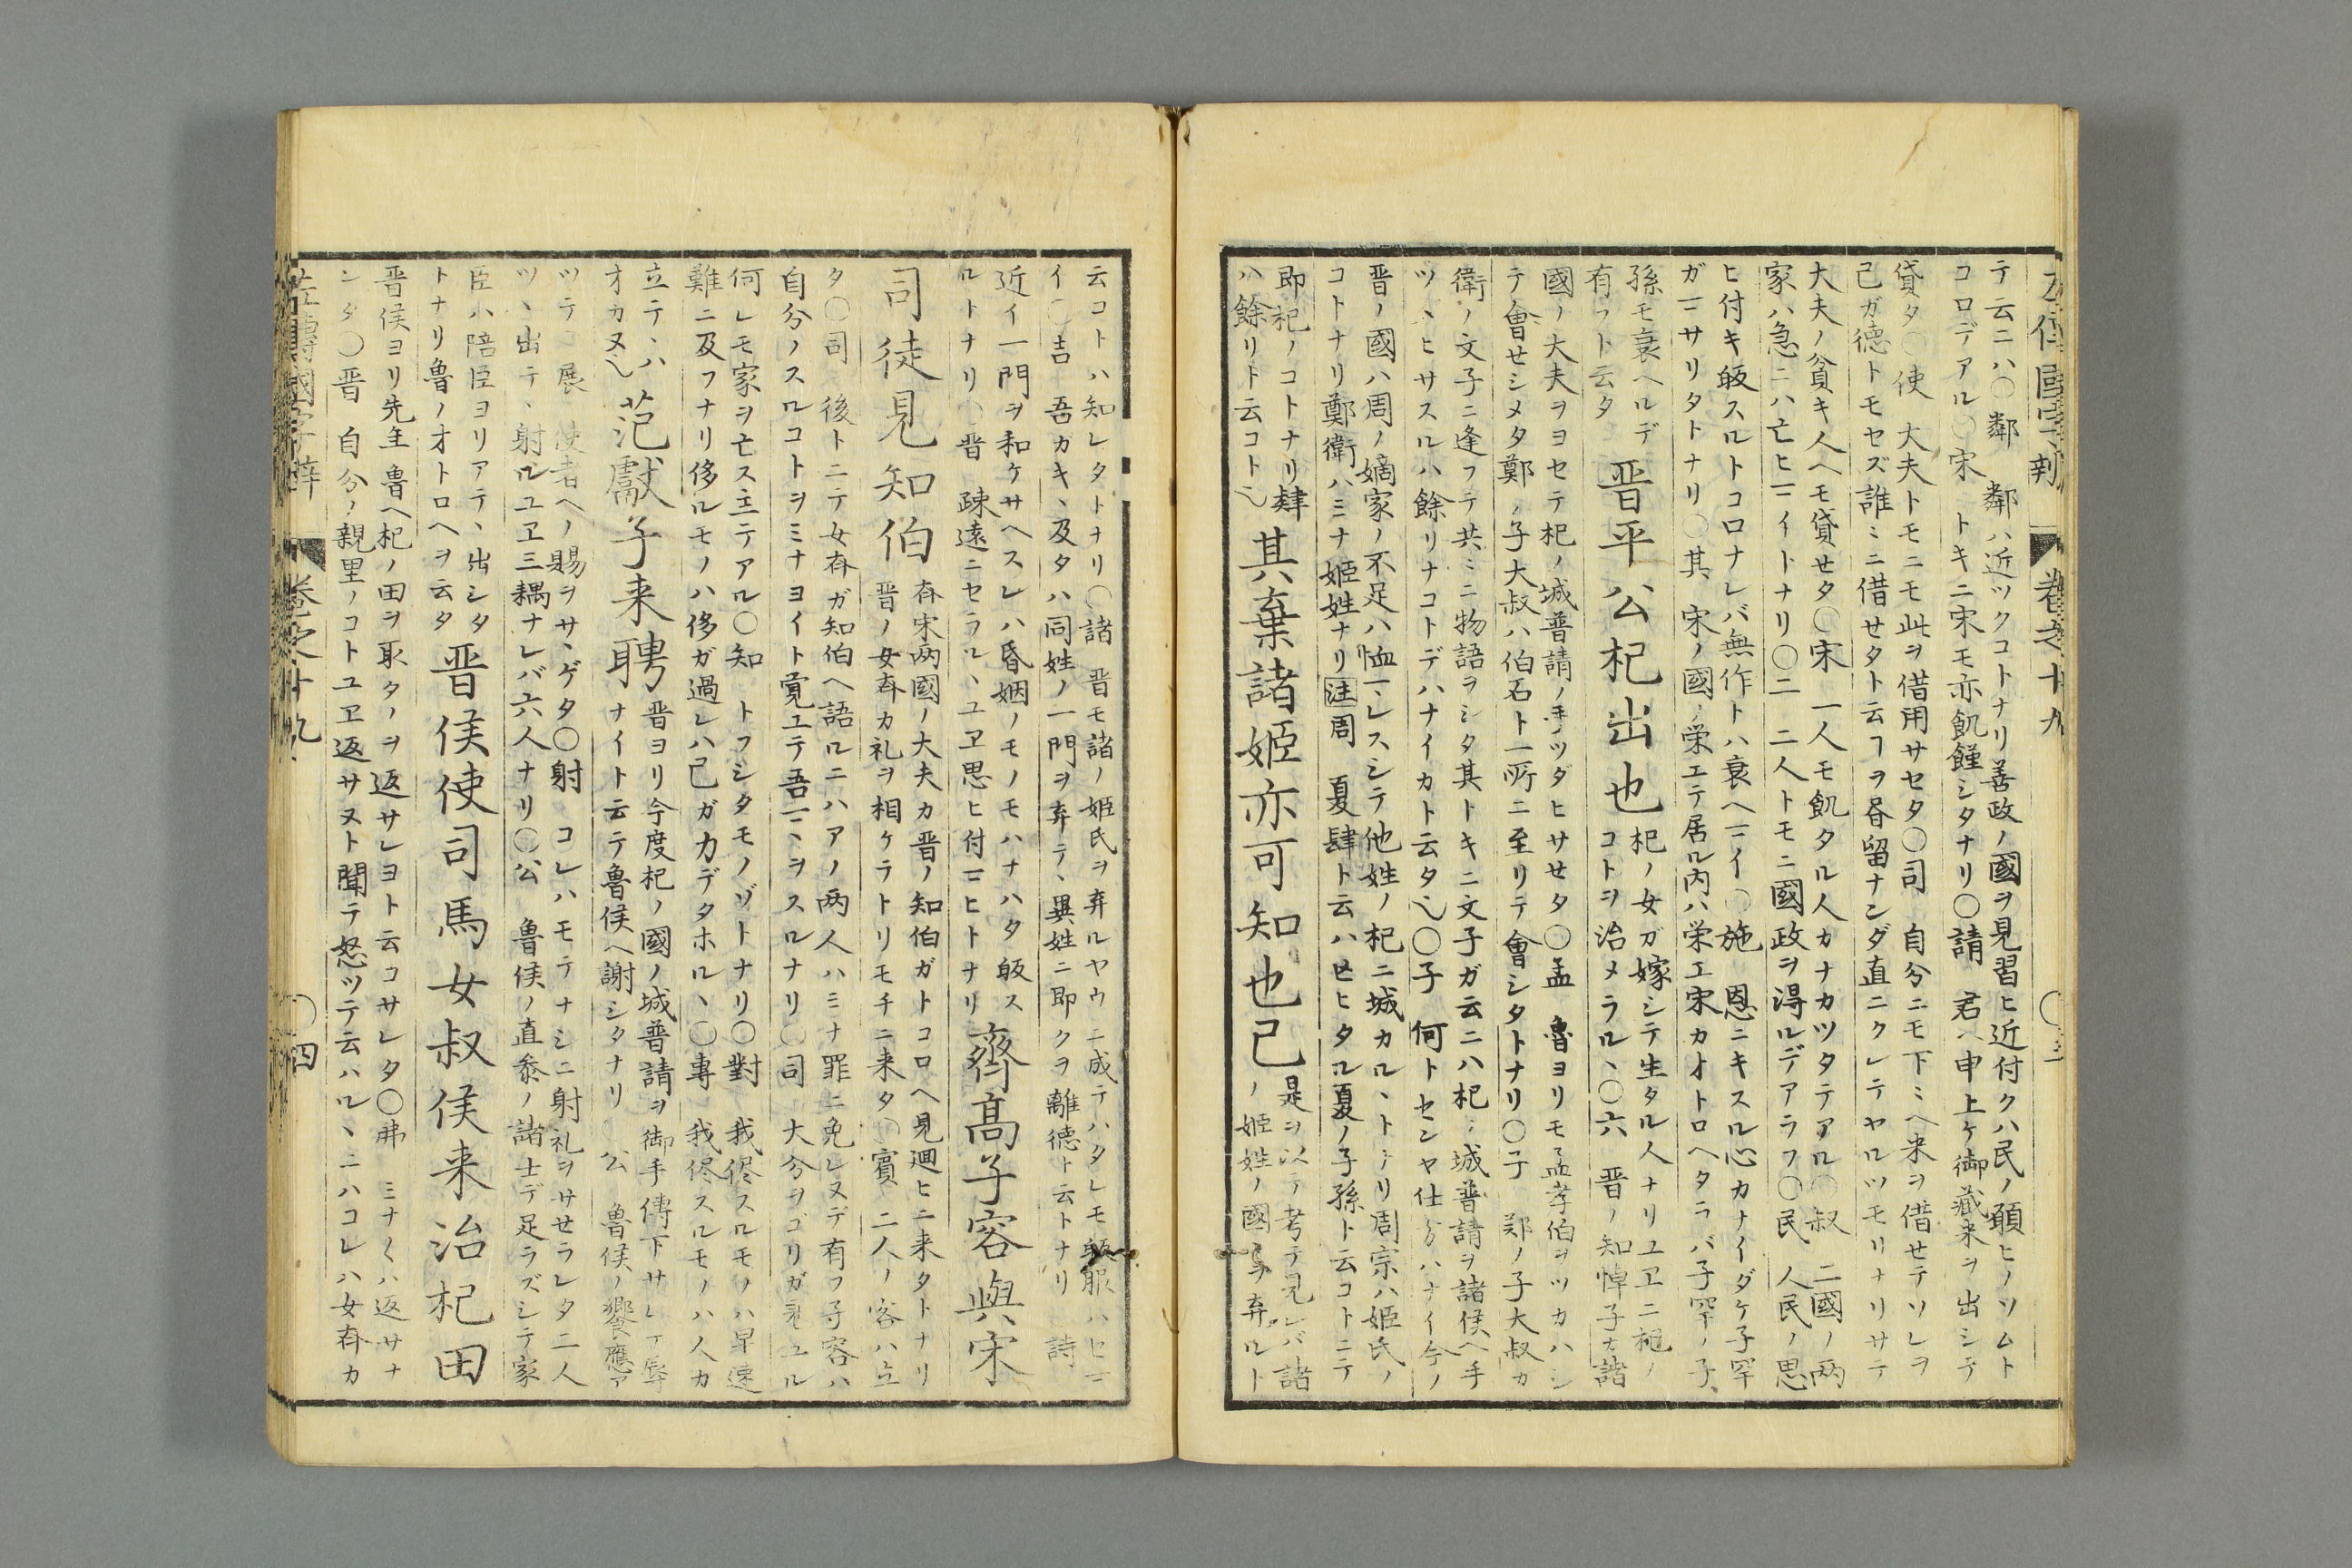 左傳國字辨 卷之十九 〇三
テ云ニハ〇鄰 鄰ハ近ツクコトナリ善政ノ國ヲ見習ヒ近付クハ民ノ願ヒノツムト
コロデアル〇宋 トキニ宋モ亦飢饉シタナリ〇請 君ヘ申上ケ御藏米ヲ出シテ
貸タ〇使 大夫トモニモ此ヲ借用サセタ〇司 自分ニモ下ミヘ米ヲ借セテソレヲ
己ガ德トモセズ誰ミニ借セタト云フヲ昏留ナンダ直ニクレテヤルツモリナリサテ
大夫ノ貧キ人ヘモ貸セタ〇宋 一人モ飢タル人カナカツタテアル〇叔 二國ノ两
家ハ急ニハ亡ヒマイトナリ〇二 二人トモニ國政ヲ淂ルデアラフ〇民 人民ノ思
ヒ付キ皈スルトコロナレバ無作トハ衰ヘマイ〇施 恩ニキスル心カナイダケ子罕
ガマサリタトナリ〇其 宋ノ國ノ栄エテ居ル内ハ栄エ宋カオトロヘタラバ子罕ノ子
孫モ衰ヘルデ
有フト云タ
晋平公杞出也
杞ノ女ガ嫁シテ生タル人ナリユヱニ杞ノ
コトヲ治メラルヽ〇六 晋ノ知悼子ガ諸
國ノ大夫ヲヨセテ杞ノ城普請ノ手ツダヒサセタ〇孟 魯ヨリモ孟孝伯ヲツカハシ
テ會セシメタ鄭ノ子大叔ハ伯石ト一所ニ至リテ會シタトナリ〇子 郑ノ子大叔カ
衛ノ文子ニ逢フテ共ミニ物語ヲシタ其トキニ文子ガ云ニハ杞ニ城普請ヲ諸侯ヘ手
ツヽヒサスルハ餘リナコトデハナイカト云タ也〇子 何トセンヤ仕方ハナイ今ノ
晋ノ國ハ周ノ嫡家ノ不足ハ恤マレスシテ他姓ノ杞ニ城カルヽトナリ周宗ハ姬氏ノ
コトナリ鄭衛ハミナ姬姓ナリ注周 夏肄ト云ハ亡ヒタル夏ノ子孫ト云コトニテ
即杞ノコトナリ肆
ハ餘リト云コト也
其棄諸姬亦可知也已
是ヲ以テ考テ見レバ諸
ノ姬姓ノ國ヲ弃ルト
云コトハ知レタトナリ〇諸 晋モ諸ノ姬氏ヲ弃ルヤウニ成テハタレモ皈服ハセマ
イ〇吉 吾カキヽ及タハ同姓ノ一門ヲ弃テヽ異姓ニ即クヲ離德ト云トナリ 詩
近イ一門ヲ和ケサヘスレハ昏姻ノモノモハナハタ皈ス
ルトナリ〇晋 疎遠ニセラルヽユヱ思ヒ付マヒトナリ
齊高子容與宋
司徒見知伯
齐宋两國ノ大夫カ晋ノ知伯ガトコロヘ見廻ヒニ来タトナリ
晋ノ女齐カ礼ヲ相ケラトリモチニ来タ〇賓 二人ノ客ハ立
タ〇司 後トニテ女齐ガ知伯ヘ語ルニハアノ两人ハミナ罪ニ免レヌデ有フ子容ハ
自分ノスルコトヲミナヨイト覚エテ吾マヽヲスルナリ〇司 大分ヲゴリガ見ユル
何レモ家ヲ亡ス主テアル〇知 トフシタモノゾトナリ〇對 我侭スルモノハ早速
難ニ及フナリ侈ルモノハ侈ガ過レハ己ガ力デタホルヽ〇專 我侭スルモノハ人カ
立テヽハ
オカヌ也
范獻子来聘
晋ヨリ今度杞ノ國ノ城普請ヲ御手傳下サレテ辱
ナイト云テ魯侯ヘ謝シタナリ〇公 魯侯ノ饗應ア
ツテ〇展 使者ヘノ賜ヲサヽゲタ〇射 コレハモテナシニ射礼ヲサセラレタ二人
ツヽ出テヽ射ルユヱ三耦ナレバ六人ナリ〇公 魯侯ノ直黍ノ諸士デ足ラズシテ家
臣小陪臣ヨリアテヽ出シタ
トナリ魯ノオトロヘヲ云タ
晋侯使司馬女叔侯来治杞田
晋侯ヨリ先年魯ヘ杞ノ田ヲ取タノヲ返サレヨト云コサレタ〇弗 ミナ〱ハ返サナ
ンタ〇晋 自分ノ親里ノコトユヱ返サヌト聞テ怒ツテ云ハルヽニハコレハ女齐カ
左傳國字辨 卷之十九 〇四